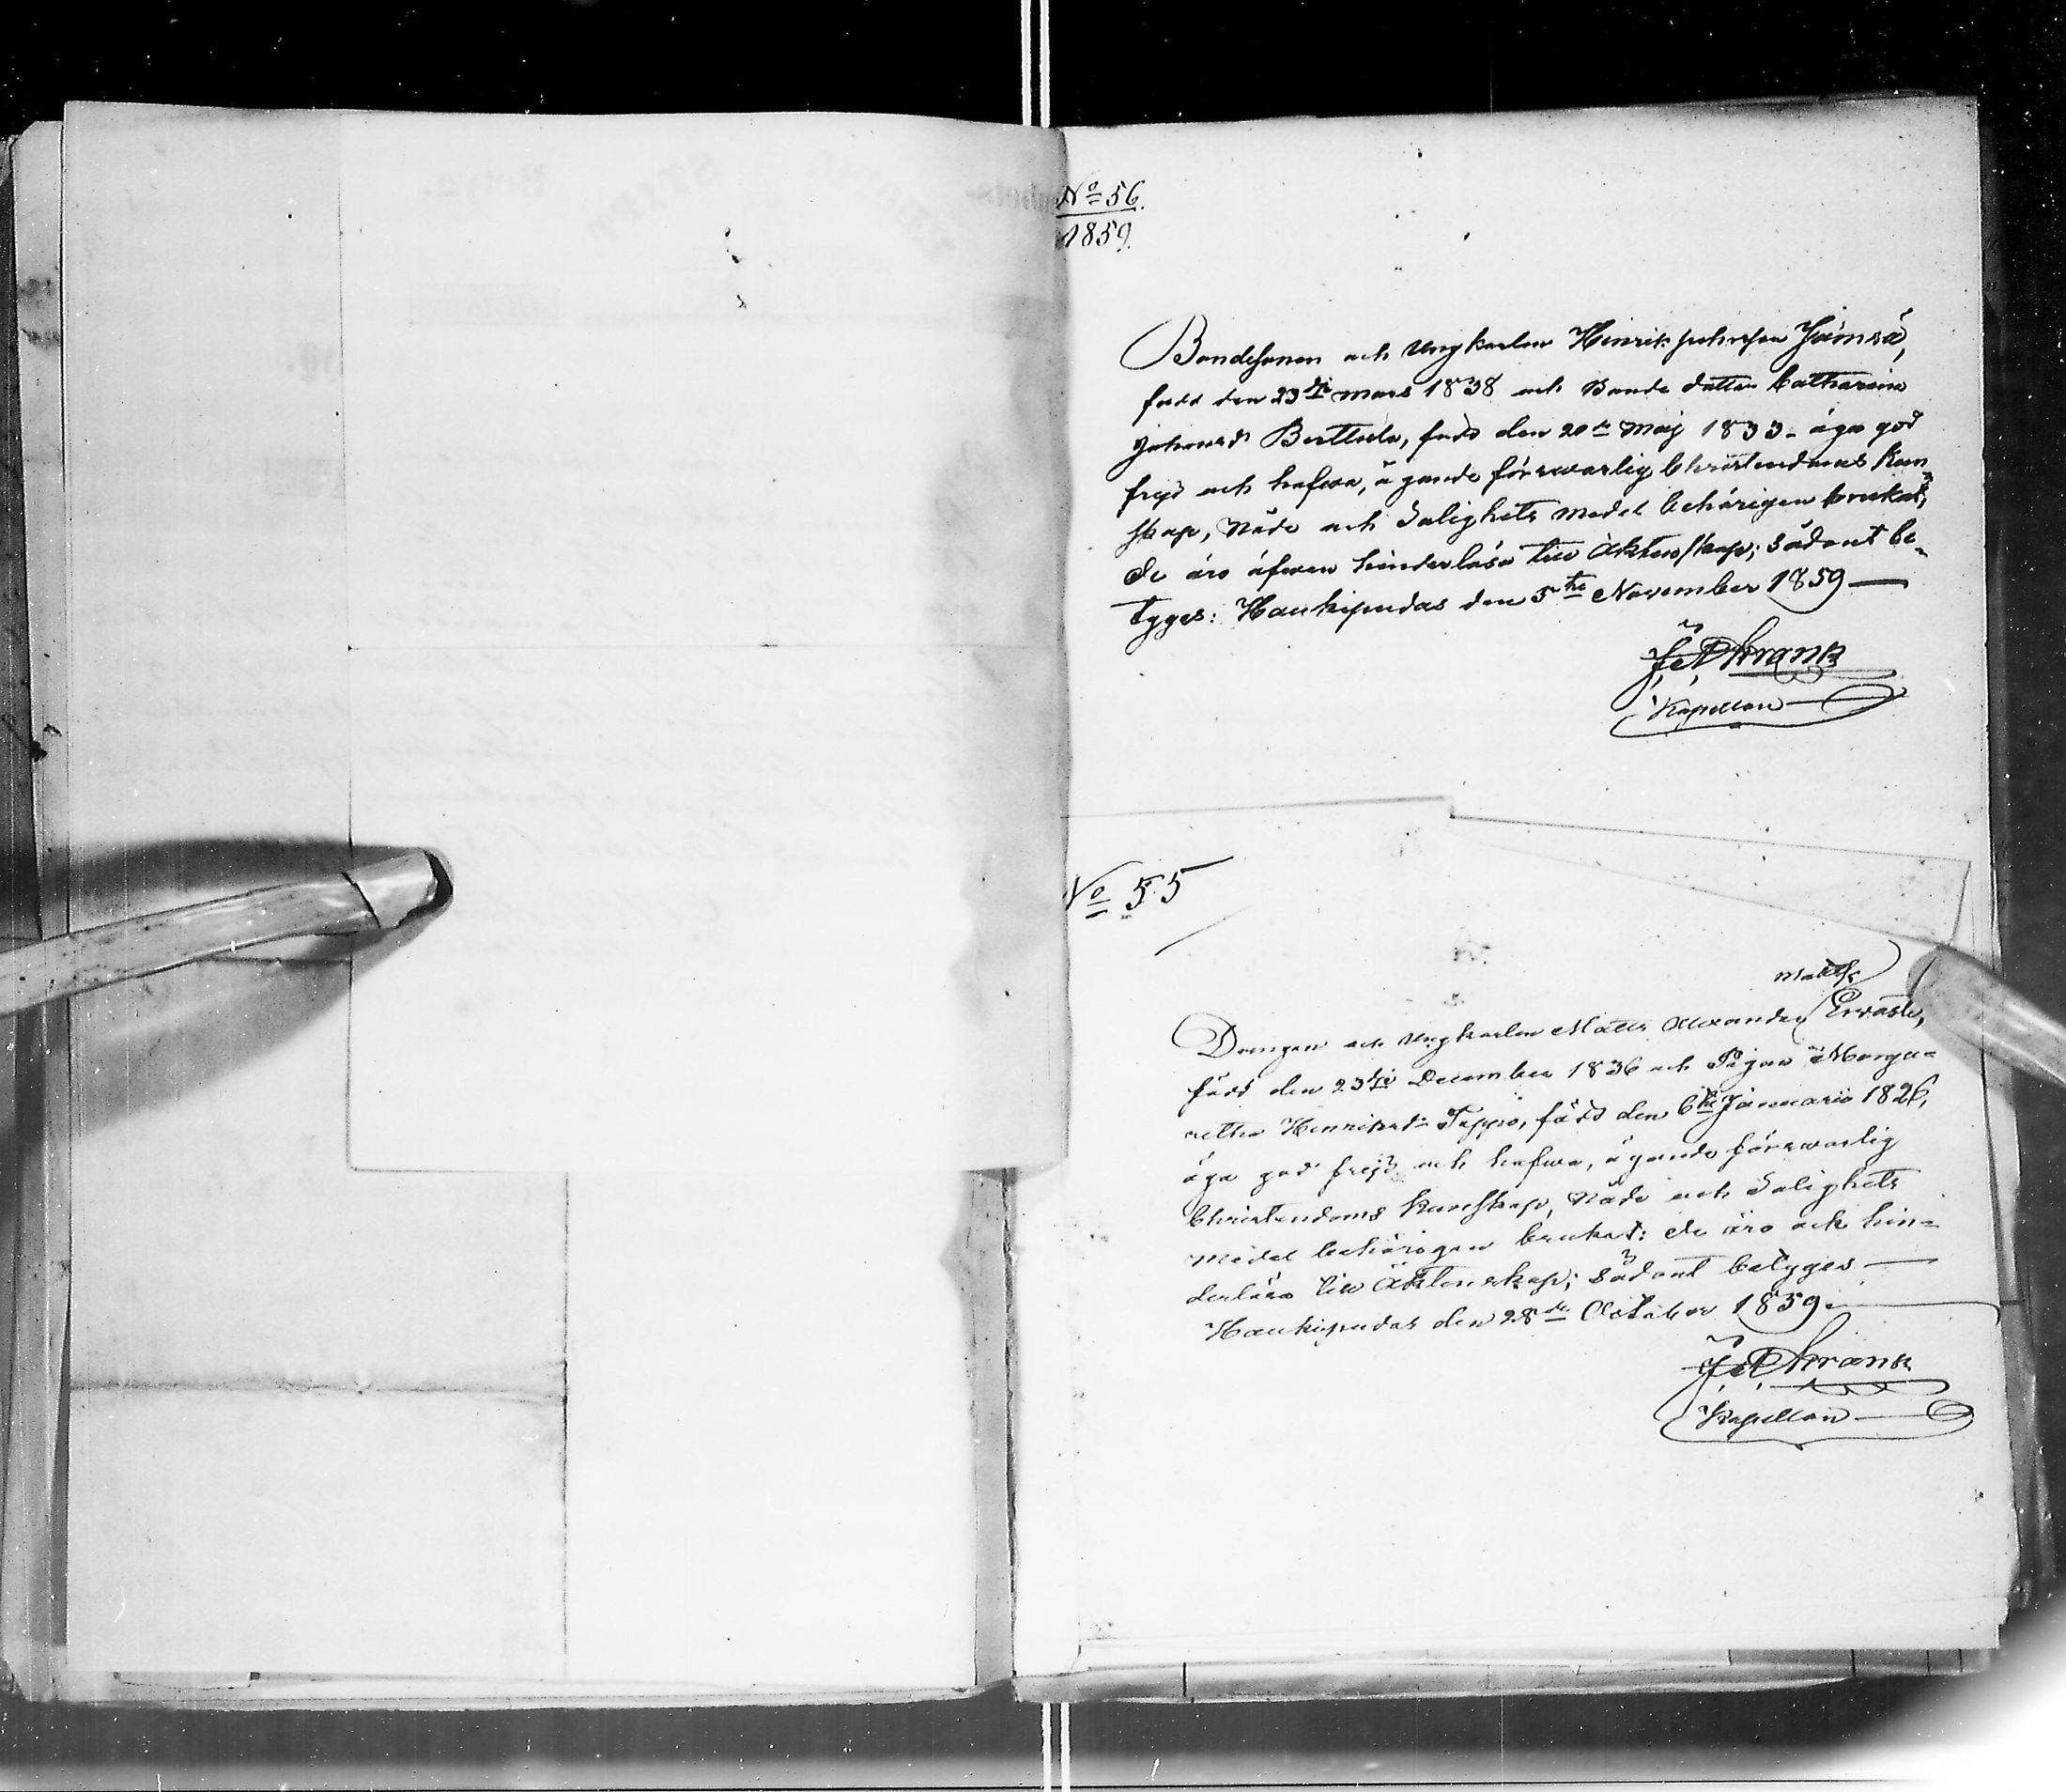 No 56.
1859.
Bondesonen och Ungkarlen Hinrik Johansson Jämsä,
född den 23die mars 1838 och Bonde dottren Catharina
Johansd. Berttula, född den 20de Maj 1833 - äga god
frejd och hafwa, ägande förswarlig Christendoms kun-
skap, Nåde och Salighets medel behörigen brukat,
de äro äfwen hinderlösa till Äktenskap; sådant be-
tyges: Haukipudas den 5te November 1859
J. A. Krank
Kapellan
No 55
Matts
Drengen och Ungkarlen Matts Alexander Erwasti,
född den 23die December 1836 och Pigan Marga-
retha Henriksd. Teppo, född den 6te Januario 1826,
äga god frejd och hafwa, ägande förswarlig
Christendoms kunskap, Nåde och Salighets
medel behörigen brukat: de äro ock hin-
derlösa till Äktenskap; sådant betyges
Haukipudas den 28de October 1859.
J. A. Krank
Kapellan